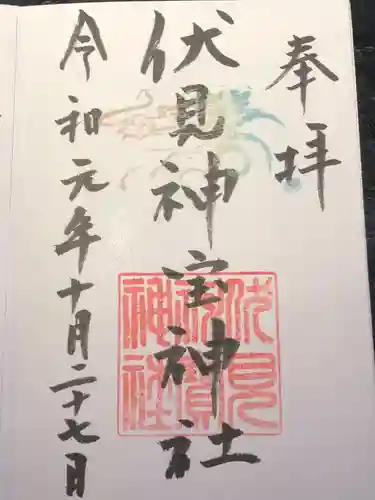 奉拝
伏見神宝神社
伏見神寳神社
令和元年十月二十七日